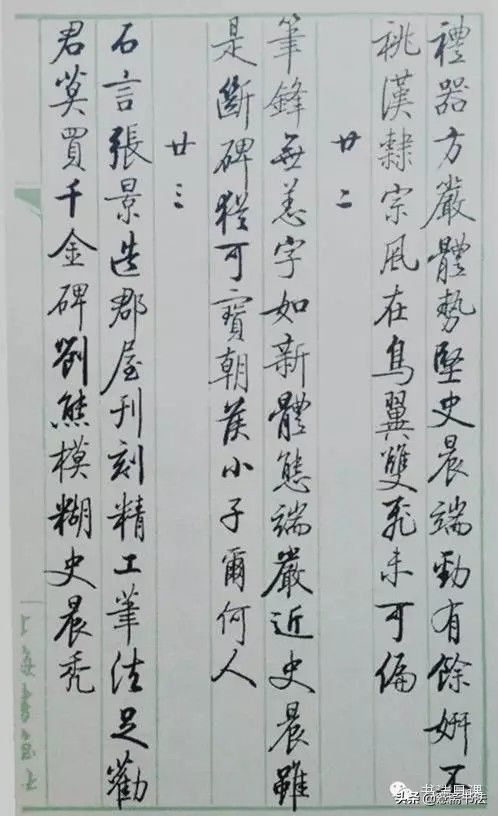 禮器方嚴體勢堅史晨端勁有餘姸不
祧漢隸宗風在鳥翼雙飛未可偏
廿二
筆鋒無恙字如新體態端嚴近史晨雖
是斷碑猶可寶朝侯小子爾何人
廿三
石言張景造郡屋刊刻精工筆法足勸
君莫買千金碑劉熊模糊史晨禿
书法网课
头条@愙斋书法